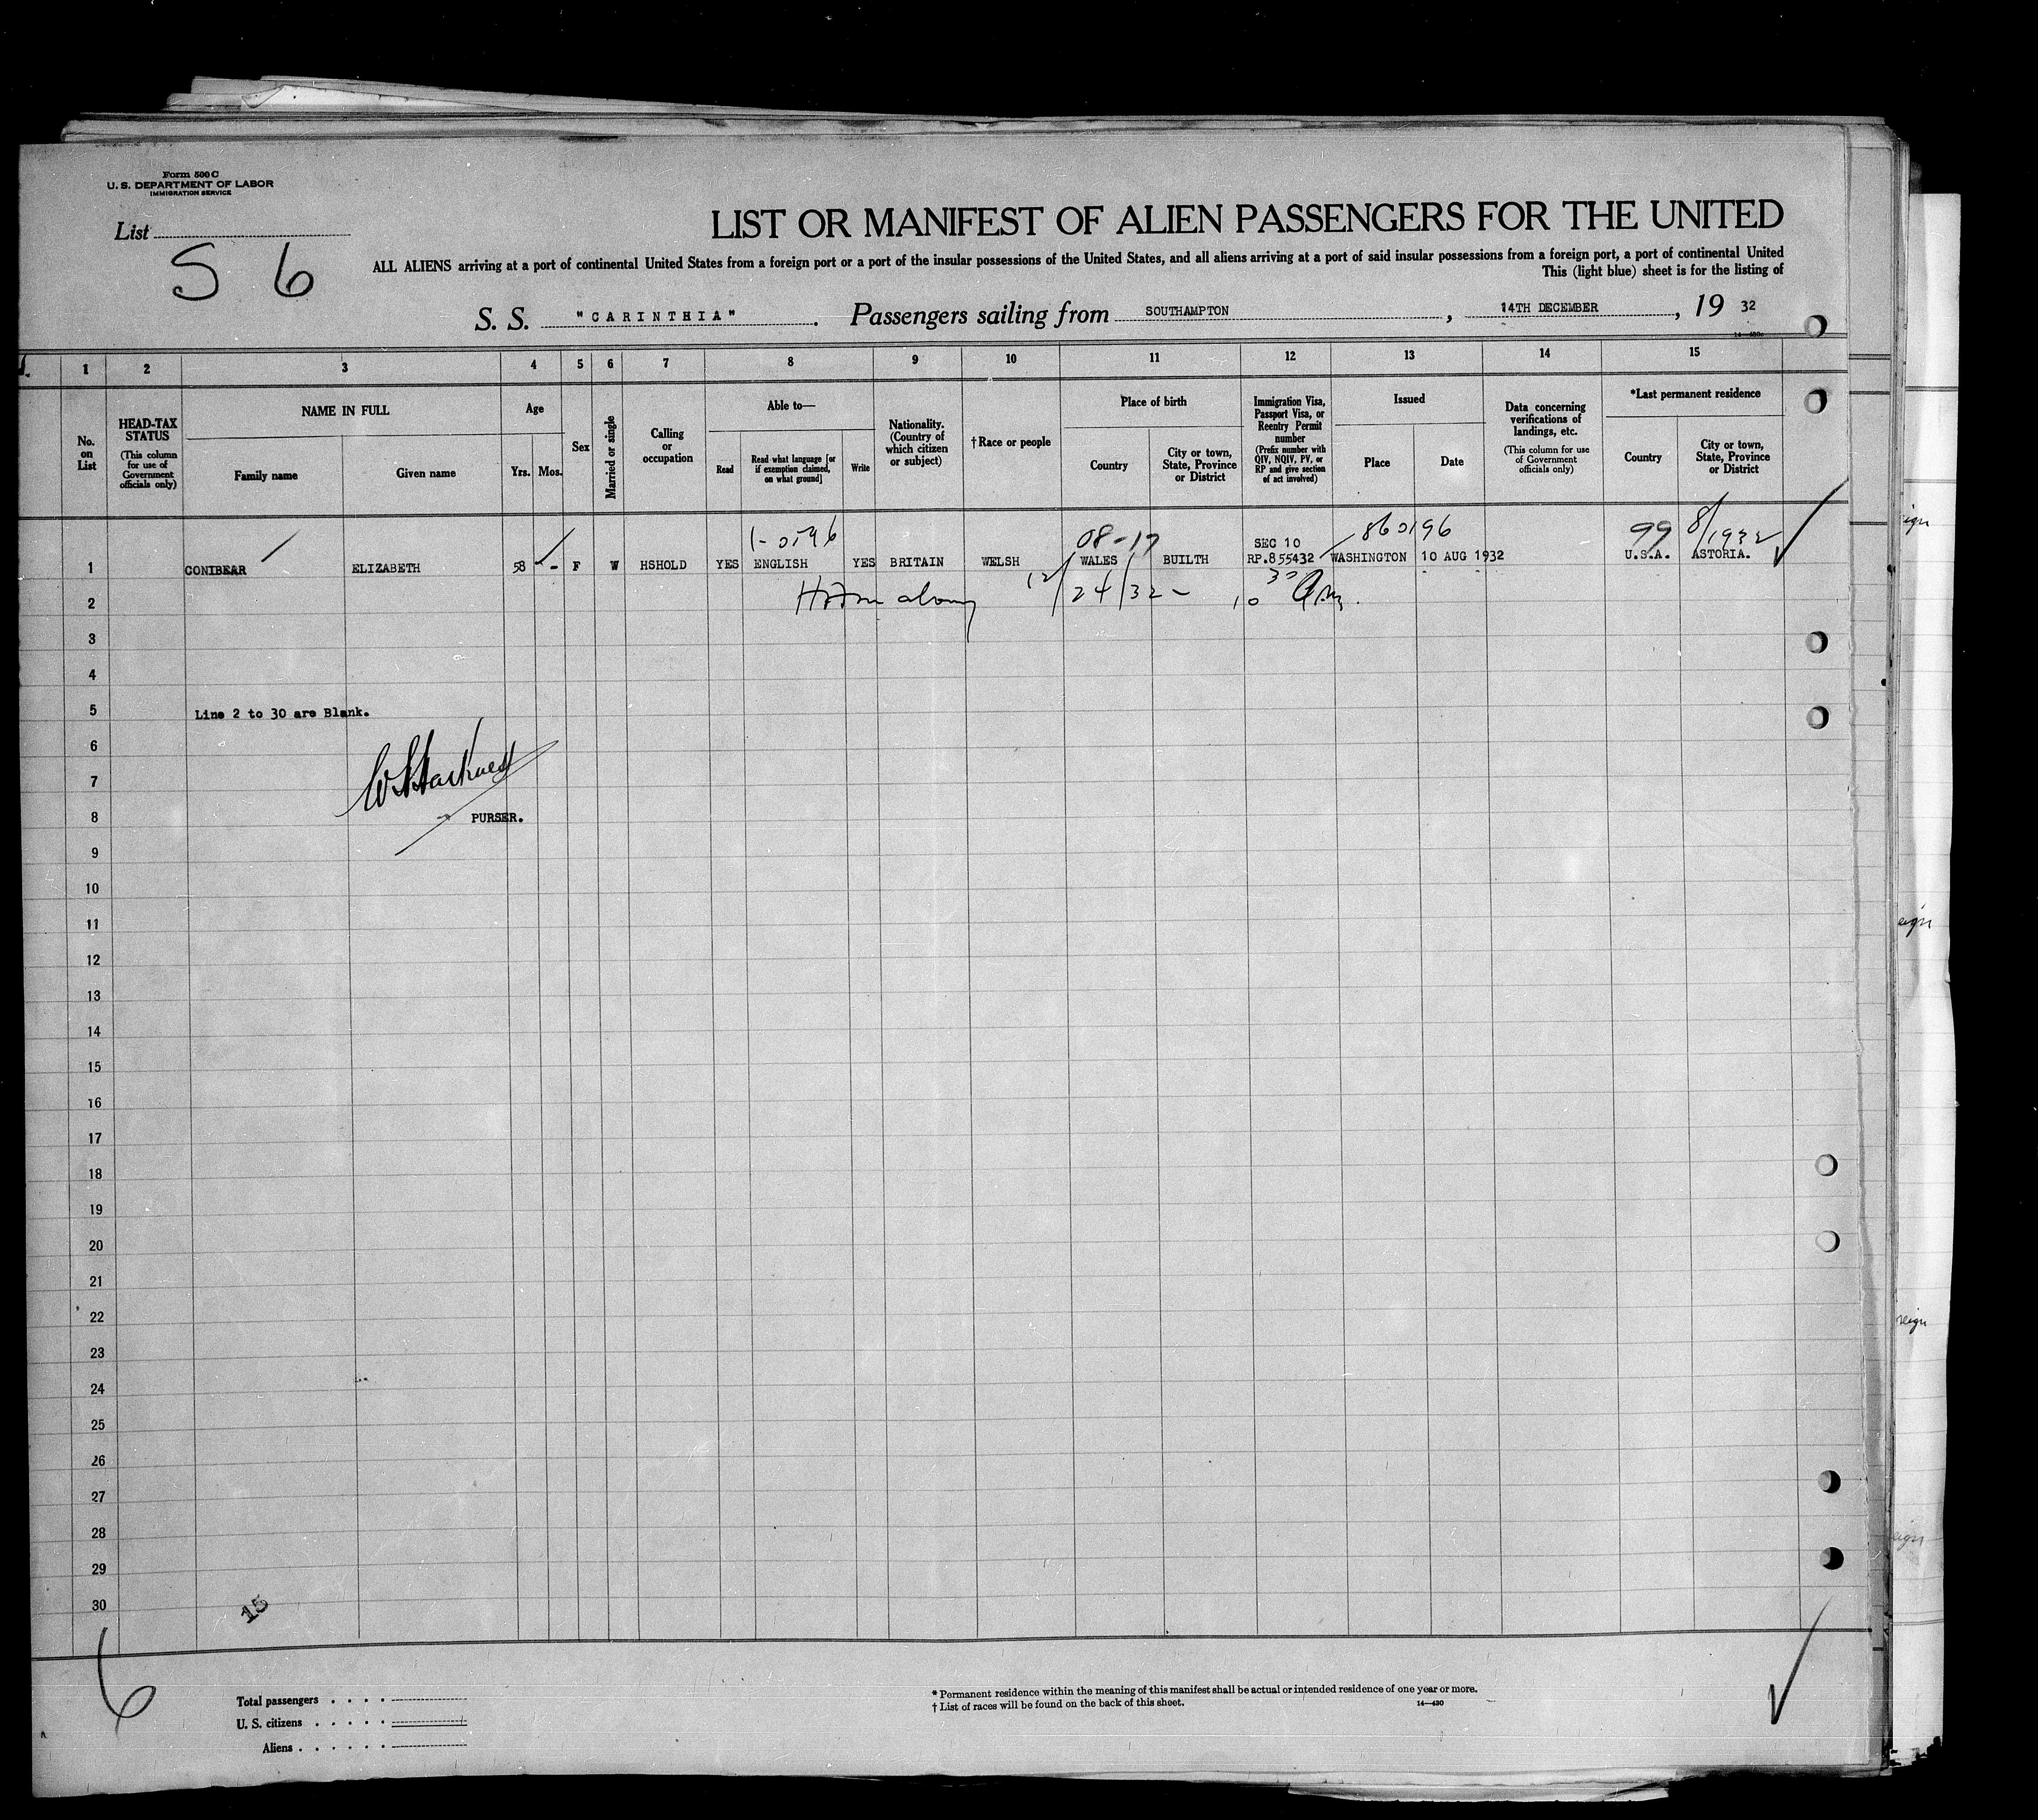 Form 500 C
U. S. DEPARTMENT OF LABOR
IMMIGRATION SERVICE
List
S 6
LIST OR MANIFEST OF ALIEN PASSENGERS FOR THE UNITED
ALL ALIENS arriving at a port of continental United States from a foreign port or a port of the insular possessions of the United States, and all aliens arriving at a port of said insular possessions from a foreign port, a port of continental United
This (light blue) sheet is for the listing of
S. S. "CARINTHIA". Passengers sailing from SOUTHAMPTON, 14TH DECEMBER, 19 32
1 2 3 4 5 6 7 8 9 10 11 12 13 14 15
No. on List
HEAD-TAX STATUS
(This column for use of Government officials only)
NAME IN FULL
Family name
Given name
Age
Yrs. Mos.
Sex
Married or single
Calling or occupation
Able to—
Read
Read what language [or if exemption claimed, on what ground]
Write
Nationality. (Country of which citizen or subject)
†Race or people
Place of birth
Country
City or town, State, Province or District
Immigration Visa, Passport Visa, or Reentry Permit number
(Prefix number with QIV, NQIV, PV, or RP and give section of act involved)
Issued
Place
Date
Data concerning verifications of landings, etc.
(This column for use of Government officials only)
*Last permanent residence
Country
City or town, State, Province or District
08-17 SEC 10 860196 99 8/1932
1 CONIBEAR ELIZABETH 58 - F W HSHOLD YES ENGLISH YES BRITAIN WELSH WALES BUILTH RP.855432 WASHINGTON 10 AUG 1932 U.S.A. ASTORIA.
2 12/24/32 -
3
4
5 Line 2 to 30 are Blank.
6
7
8 PURSER.
9
10
11
12
13
14
15
16
17
18
19
20
21
22
23
24
25
26
27
28
29
30
15
6
Total passengers . . . .
U. S. citizens . . . . .
Aliens . . . . . .
* Permanent residence within the meaning of this manifest shall be actual or intended residence of one year or more.
† List of races will be found on the back of this sheet.
14—430